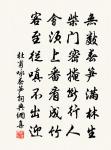 無數春筍滿林生
柴門密掩斷行人
會須上番看成竹
客至從嗔不出迎
杜甫詠春筍詞典網